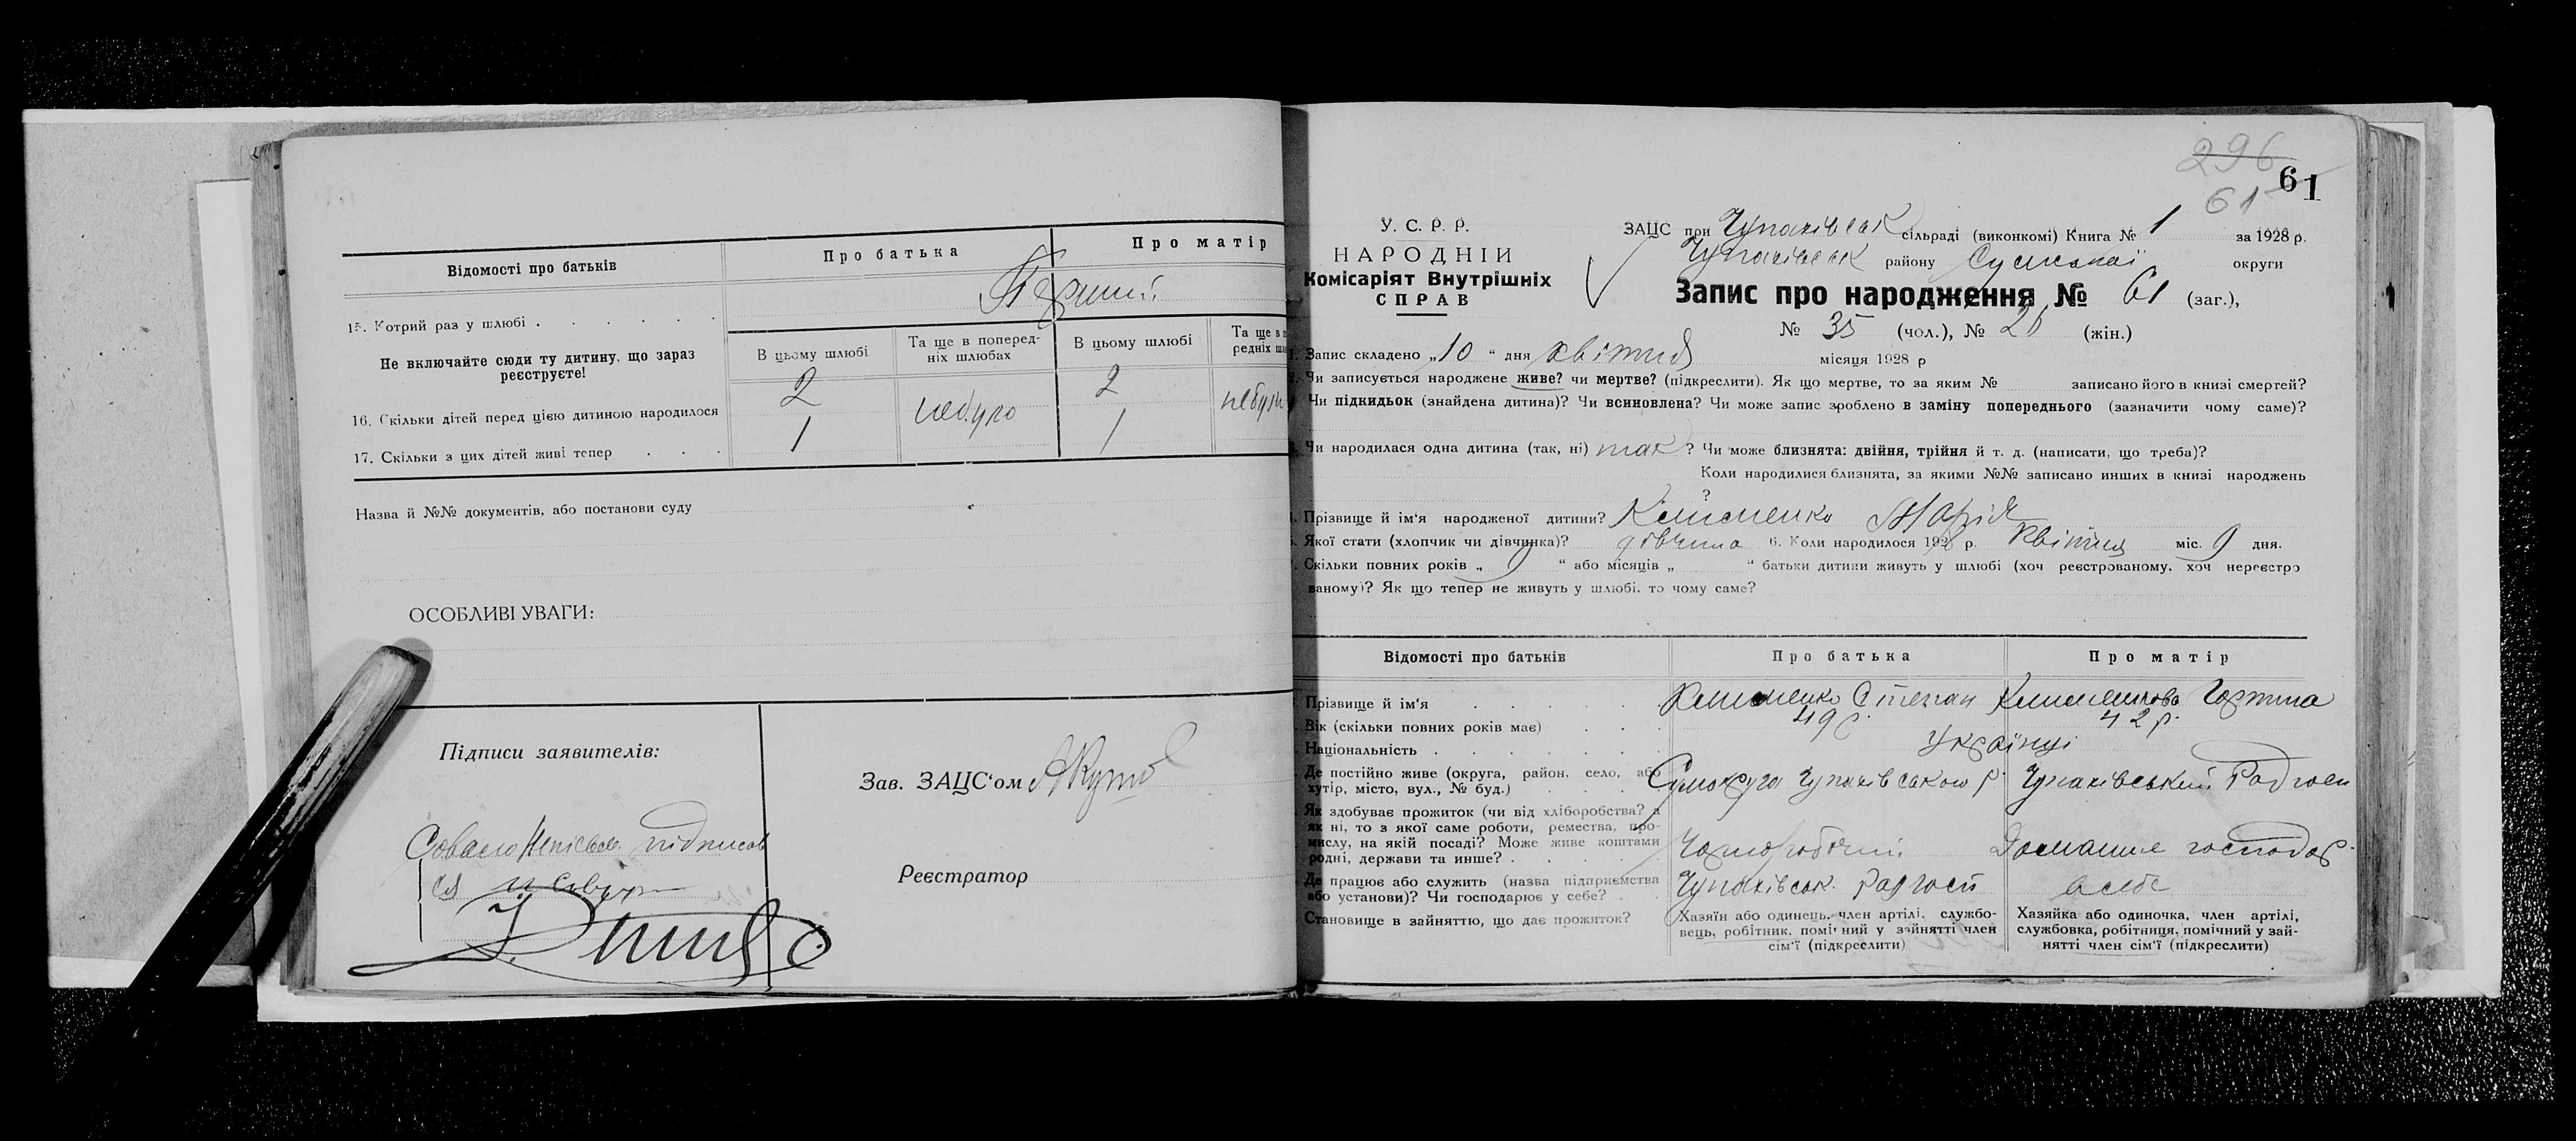 Відомості про батьків
Про батька
Про матір
15. Котрий раз у шлюбі
Перший
Не включайте сюди ту дитину, що зараз
реєструєте!
В цьому шлюбі
Та ще в поперед-
ніх шлюбах
В цьому шлюбі
Та ще в п
редніх шл
16. Скільки дітей перед цією дитиною народилося
2
небуло
2
небуло
17. Скільки з цих дітей живі тепер
1
1
Назва й №№ документів, або постанови суду
ОСОБЛИВІ УВАГИ:
Підписи заявителів:
підписав
ся
Зав. ЗАЦС'ом
Реєстратор
296
61
61
У. С. Р. Р.
НАРОДНІЙ
Комісаріят Внутрішніх
СПРАВ
ЗАЦС при Чупахівськ сільраді (виконкомі) Книга № 1 за 1928 р.
Чупахівськ району Сумської округи
Запис про народження № 61 (заг.),
№ 35 (чол.), № 26 (жін.)
1. Запис складено „10“ дня квітня місяця 1928 р
2. Чи записується народжене живе? чи мертве? (підкреслити). Як що мертве, то за яким № записано його в книзі смертей?
Чи підкидьок (знайдена дитина)? Чи всиновлена? Чи може запис зроблено в заміну попереднього (зазначити чому саме)?
Чи народилася одна дитина (так, ні) так? Чи може близнята: двійня, трійня й т. д. (написати, що треба)?
Коли народилися близнята, за якими №№ записано инших в книзі народжень
?
Прізвище й ім'я народженої дитини? Клименко Марія
Якої стати (хлопчик чи дівчинка)? дівчина 6. Коли народилося 1928 р. квітня міс. 9 дня.
Скільки повних років „ 9 “ або місяців „ “ батьки дитини живуть у шлюбі (хоч реєстрованому, хоч нереєстро
ваному)? Як що тепер не живуть у шлюбі, то чому саме?
Відомості про батьків
Про батька
Про матір
Прізвище й ім'я
Клименко Степан
Клименкова
Вік (скільки повних років має)
49 р.
42 р.
Національність
Українці
Де постійно живе (округа, район, село, або
хутір, місто, вул., № буд.)
Сумокруга Чупахівського р.
Чупахівський Радгосп
Як здобуває прожиток (чи від хліборобства? а
як ні, то з якої саме роботи, ремества, про-
мислу, на якій посаді? Може живе коштами
родні, держави та инше?
Чорноробочий
Домашнє господар.
Де працює або служить (назва підприємства
або установи)? Чи господарює у себе?
Чупахівськ. Радгосп
в себе
Становище в зайняттю, що дає прожиток?
Хазяїн або одинець, член артілі, службо-
вець, робітник, помічний у зайнятті член
сім'ї (підкреслити)
Хазяйка або одиночка, член артілі,
службовка, робітниця, помічний у зай-
нятті член сім'ї (підкреслити)